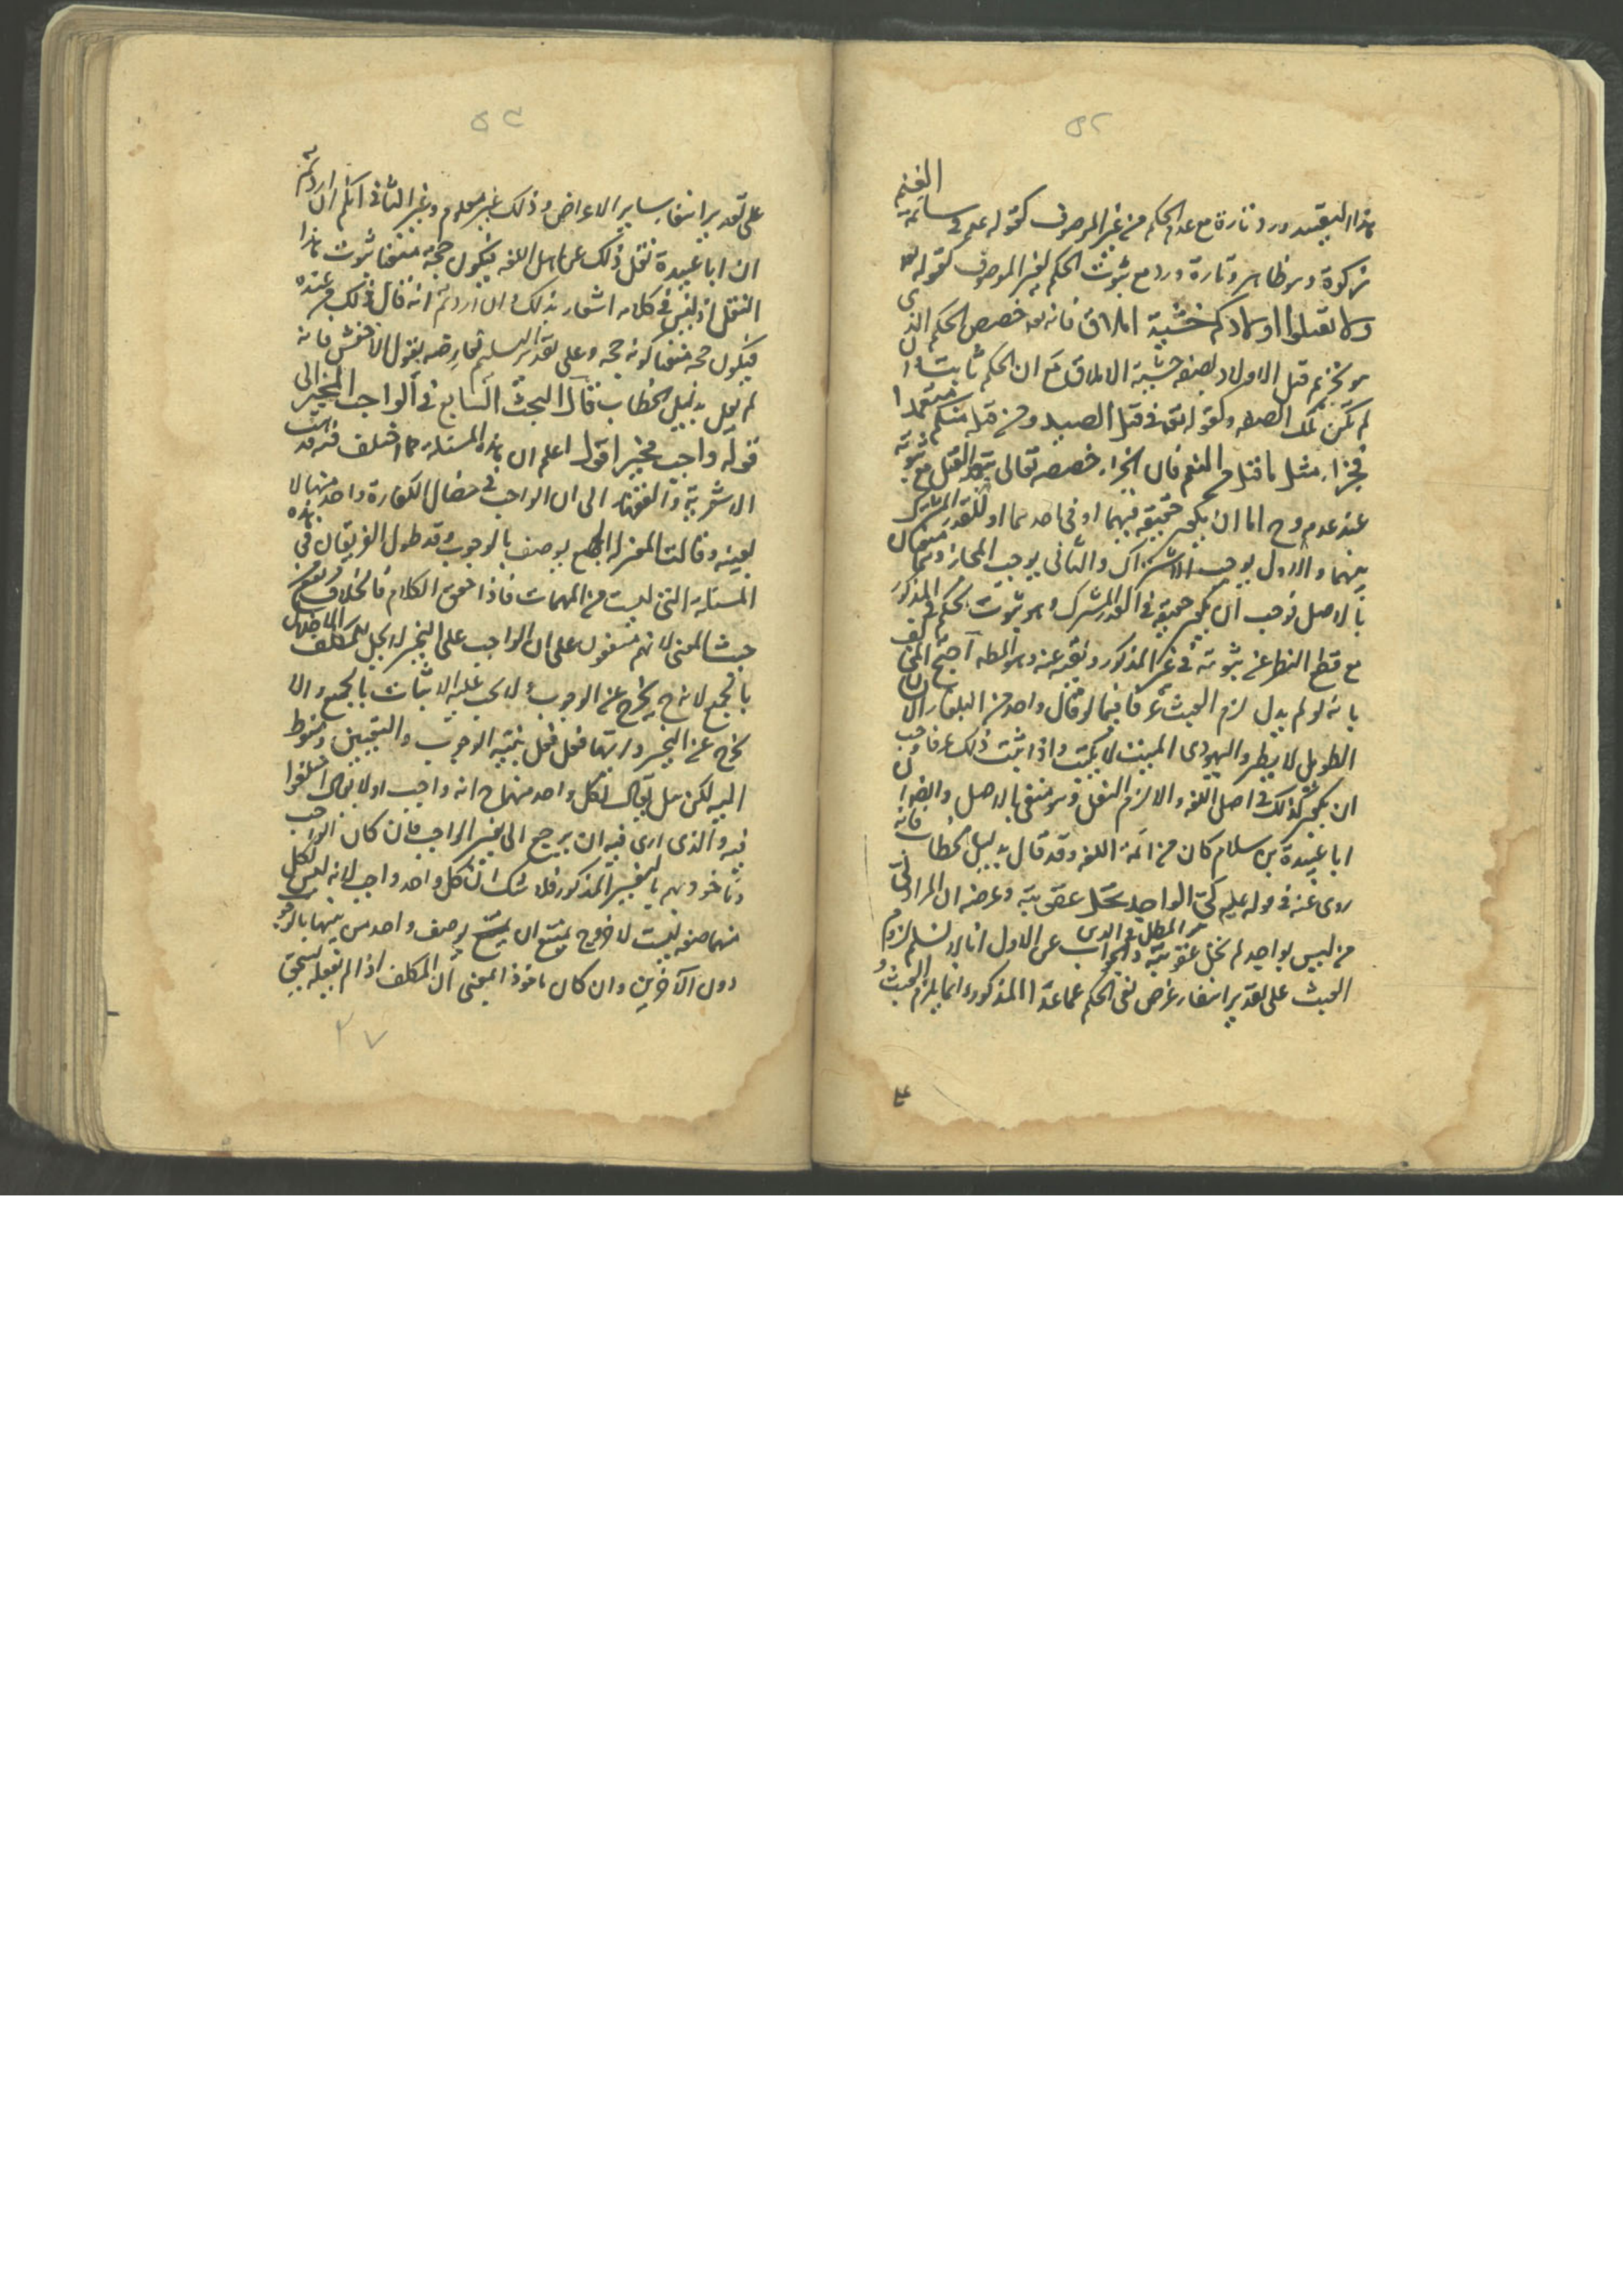 هذا التقييد ورد تارة مع عدم الحكم من غير الموصوف كقوله علم في سايمة الغنم
زكوة وهو ظاهر وتارة ورد مع ثبوت الحكم لغير الموصوف كقوله تعه
ولا تقتلوا اولادكم خشية املاق فانه تعه خصص الحكم الذى
هو تحريم قتل الاولاد بصفة خشية الاملاق مع ان الحكم ثابت وان
لم تكن تلك الصفه وكقوله تعه فى قتل الصيد ومن قتله منكم متعمدا
فجزاء مثل ما قتل من النعم فان الجزاء خصصه تعالى بتعمد القتل مع ثبوته
عند عدمه وح اما ان يكون حقيقة فيهما او فى احدهما او للقدر المشترك
بينهما والاول يوجب الاشتراك والثانى يوجب المجاز وهما منفيان
بالاصل فوجب ان يكون حقيقة فى القدر المشترك وهو ثبوت الحكم فى المذكور
مع قطع النظر عن ثبوته فى غير المذكور ونفيه عنه وهو المط احتج المخالف
بانه لو لم يدل لزم العبث عرفا فيما لو قال واحد من البلغاء الانسان
الطويل لا يطير واليهودى الميت لا يكتب واذا ثبت ذلك عرفا وجب
ان يكون كذلك فى اصل اللغه والا لزم النقل وهو منفى بالاصل وايضا ان
ابا عبيدة بن سلام كان من ائمة اللغه وقد قال بدليل الخطاب فانه
روى عنه فى قوله عليه لىّ الواجد يحل عقوبته وعرضه ان المراد انّ
من ليس بواجد لم يحل عقوبته والجواب عن الاول انا لا نسلم لزوم
العبث على تقدير انتفاء غرض نفى الحكم عما عدا المذكور وانما يلزم العبث
على تقدير انتفاء ساير الاعراض وذلك غير معلوم وعن الثانى انكم ان اردتم
ان ابا عبيدة نقل ذلك عن اهل اللغه فيكون حجة منعنا ثبوت هذا
النقل اذ ليس فى كلامه اشعار بذلك وان اردتم انه قال ذلك من عنده
فيكون حجه منعنا كونه حجه وعلى تقدير التسليم نعارضه بقول الاخفش فانه
لم يقل بدليل الخطاب قال البحث السابع فى الواجب المخير الى
قوله واجب مخير اقول اعلم ان هذه المسئله مما اختلف فيه فذهبت
الاشعرية والفقهاء الى ان الواجب فى خصال الكفارة واحد منها لا
بعينه وقالت المعتزله الجميع يوصف بالوجوب وقد طول الفريقان فى هذه
المسئلة التى ليست من المهمات فاذا حقق الكلام فالخلاف يرتفع
حيث المعنى لانهم متفقون على ان الواجب على التخيير لا يجل للمكلف الاخلال
بالجميع لانه ح يخرج عن الوجوب ولا يجب عليه الاتيان بالجميع والا
يخرج عن التخيير وايها فعل فعل بنية الوجوب والتعيين منوط
اليه لكن هل يقال لكل واحد منها ح انه واجب او لا يقال اختلفوا
فيه والذى ارى فيه ان يرجع الى تفسير الواجب فان كان الواجب
ماخوذ بهم بالتفسير المذكور فلا شك ان كل واحد واجب لانه ليس لكل
منها صفه ليست لاخرى ح يمتنع ان يوصف واحد من بينها بالوجوب
دون الآخرين وان كان ماخوذ المعنى ان المكلف اذا لم يفعله يستحق